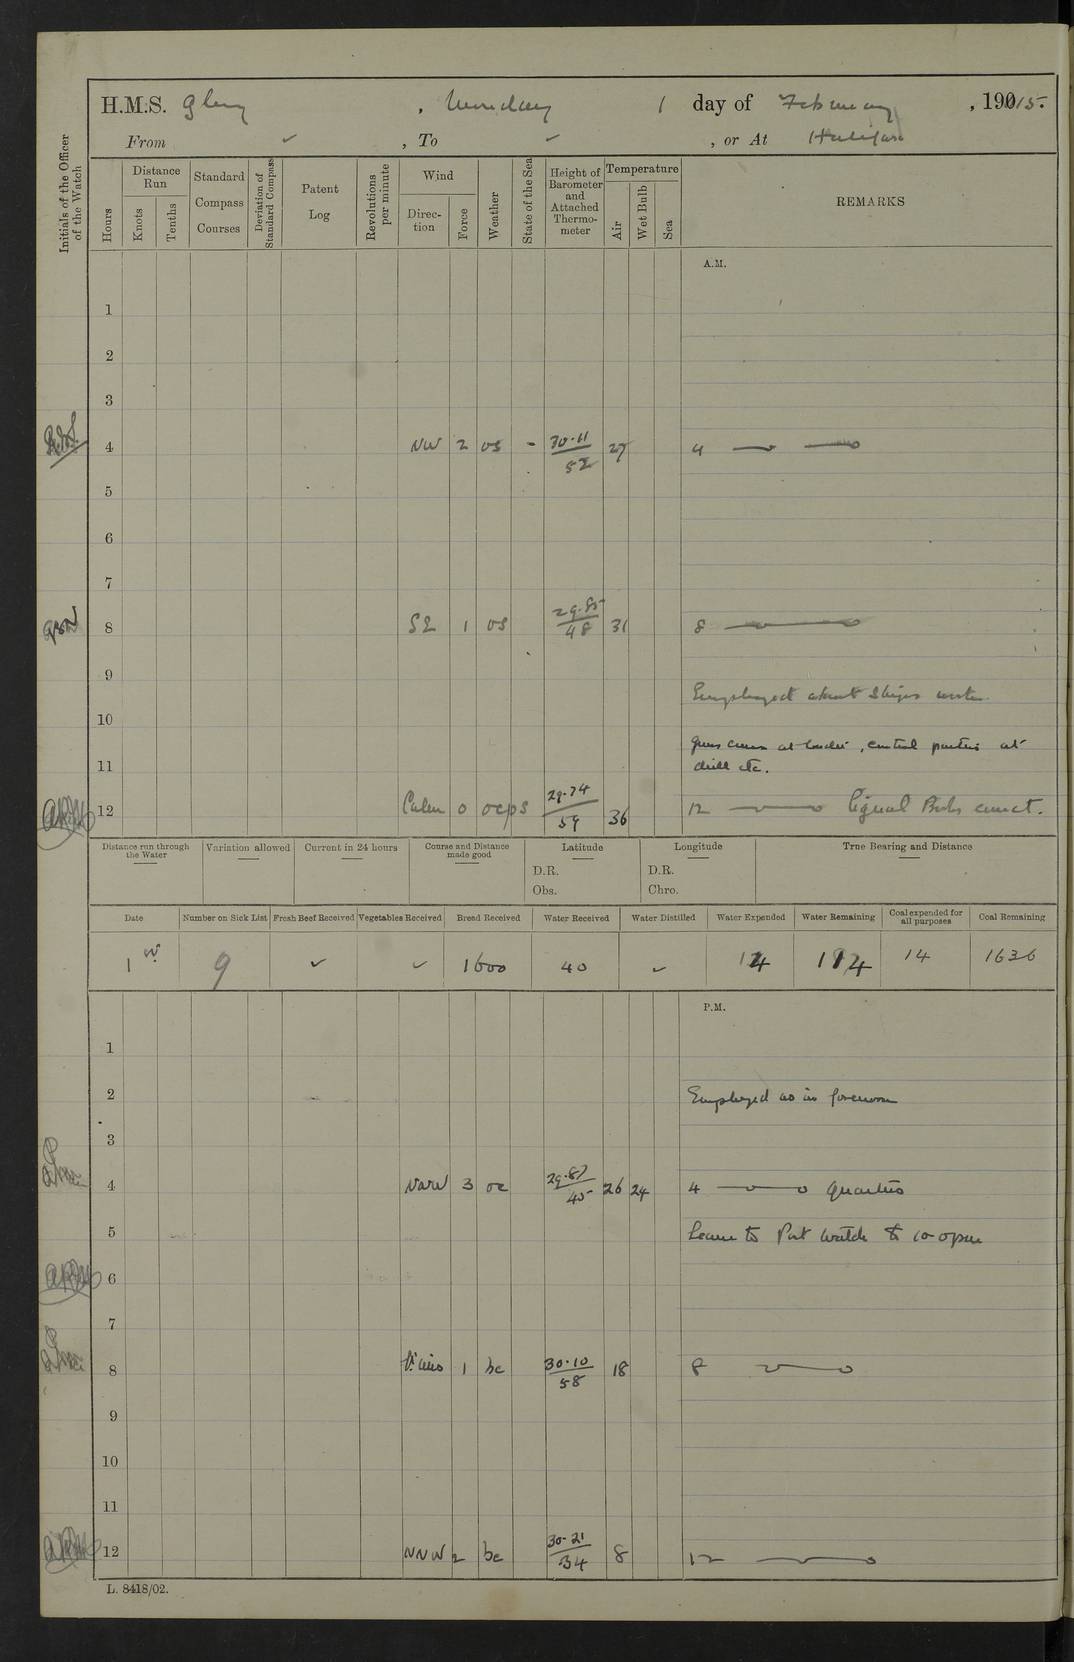 H.M.S. Glory, Monday 1 day of February, 1915.
From ✓, To ✓, or At Halifax
Initials of the Officer of the Watch
Hours
Distance Run
Knots
Tenths
Standard Compass Courses
Deviation of Standard Compass
Patent Log
Revolutions per minute
Wind
Direction
Force
Weather
State of the Sea
Height of Barometer and Attached Thermometer
Temperature
Air
Wet Bulb
Sea
REMARKS
A.M.
1
2
3
4 NW 2 os - 30.11 52 27 4
5
6
7
8 SE 1 os 29.85 48 31 8
9
Employed about Ships work
10
Guns crews at loader, control parties at
11
drill etc.
12 Calm 0 ocps 29.74 59 36 12 Signal Books correct.
Distance run through the Water
Variation allowed
Current in 24 hours
Course and Distance made good
Latitude
D.R.
Obs.
Longitude
D.R.
Chro.
True Bearing and Distance
Date
Number on Sick List
Fresh Beef Received
Vegetables Received
Bread Received
Water Received
Water Distilled
Water Expended
Water Remaining
Coal expended for all purposes
Coal Remaining
1st 9 ✓ ✓ 1600 40 ✓ 14 194 14 1636
P.M.
1
2 Employed as in forenoon
3
4 NW 3 oc 29.87 45 26 24 4 Quarters
5 Leave to Port Watch to 10-0pm
6
7
8 1 bc 30.10 58 18 8
9
10
11
12 NNW 2 bc 30.21 34 8 12
L. 8418/02.